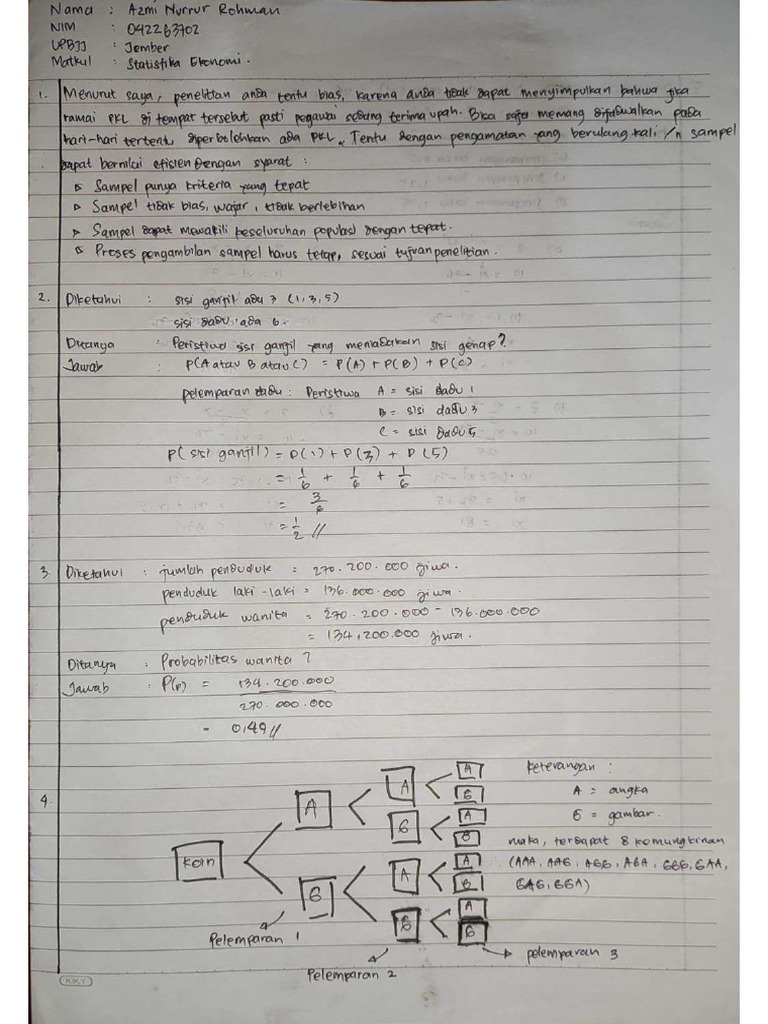 Nama : Azmi Nurrur Rohman
NIM : 042263702
UPBJJ : Jember
Matkul : Statistika Ekonomi.
1. Menurut saya, penelitian anda tentu bias, karena anda tidak dapat menyimpulkan bahwa jika
ramai PKL di tempat tersebut pasti pegawai sedang terima upah. Bisa saja memang dijadwalkan pada
hari-hari tertentu diperbolehkan ada PKL. Tentu dengan pengamatan yang berulang kali /n sampel
dapat bernilai efisien dengan syarat :
▷ Sampel punya kriteria yang tepat
▷ Sampel tidak bias, wajar, tidak berlebihan
▷ Sampel dapat mewakili keseluruhan populasi dengan tepat.
▷ Proses pengambilan sampel harus tetap, sesuai tujuan penelitian.
2. Diketahui : sisi ganjil ada 3 (1,3,5)
sisi dadu ada 6.
Ditanya : Peristiwa sisi ganjil yang meniadakan sisi genap?
Jawab : P(A atau B atau C) = P(A) + P(B) + P(C)
pelemparan dadu : Peristiwa A = sisi dadu 1
B = sisi dadu 3
C = sisi dadu 5
P(sisi ganjil) = P(1) + P(3) + P(5)
= 1/6 + 1/6 + 1/6
= 3/6
= 1/2 //
3. Diketahui : jumlah penduduk = 270.200.000 jiwa.
penduduk laki-laki = 136.000.000 jiwa.
penduduk wanita = 270.200.000 - 136.000.000
= 134,200.000 jiwa.
Ditanya : Probabilitas wanita?
Jawab : P(p) = 134.200.000
270.000.000
= 0,49 //
4.
Koin
A
G
A
G
A
G
A
G
A
G
A
B
A
G
Pelemparan 1
Pelemparan 2
pelemparan 3
Keterangan :
A = angka
G = gambar.
maka, terdapat 8 kemungkinan
(AAA, AAG, AGG, AGA, GGG, GAA,
GAG, GGA)
KKY